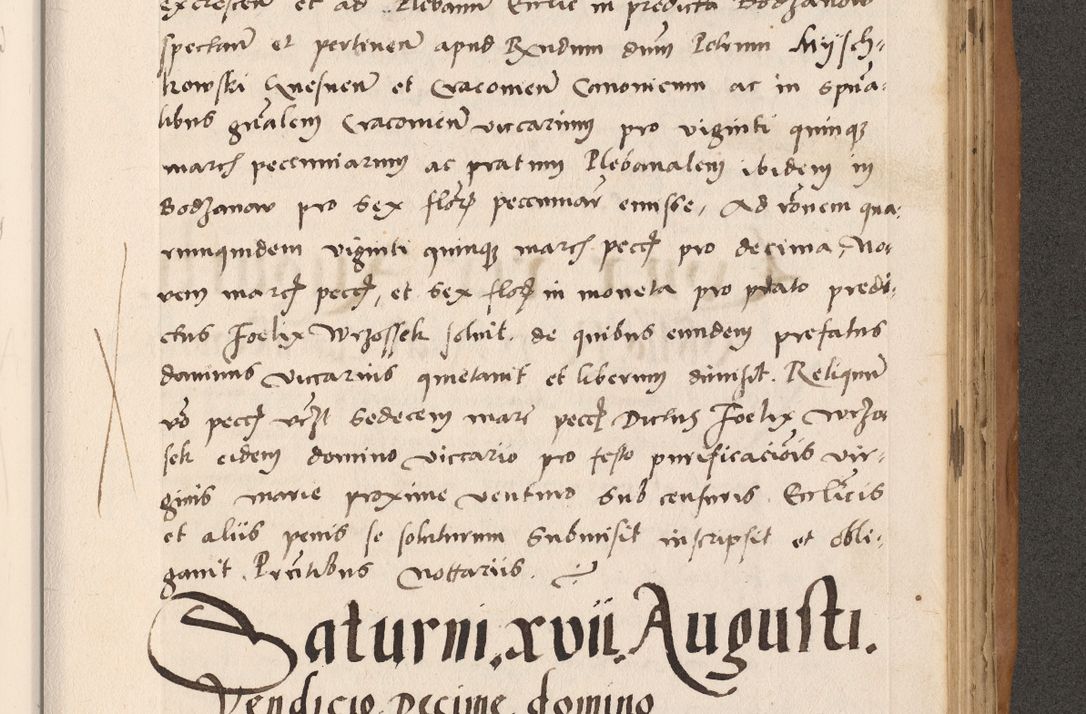 excrescen et ad Plebanum Ecclie in predicta Bodzanow
spectan et pertinen apud Rndum dum Petrum Mijsch-
kowski Gnesnen et Cracovien Canonicum ac in spua-
libus gralem Cracovien viccarium pro viginti quinq
march pecuniarum ac pratum Plebanalem ibidem in
Bodzanow pro sex flor pecuniar emisse, Ad ronem qua-
rumquidem viginti quinq march pecc pro decima, No-
vem march pecc, et sex flor in moneta pro prato predi-
ctus Foelix Wrzossek solvit. de quibus eundem prefatus
dominus viccarius quietavit et liberum dimisit. Reliquu
vo pecc vczt sedecem marc pecc Dictus Foelix Wrzos
sek eidem domino viccario pro festo purificaciois vir-
ginis marie proxime venturo sub censuris Ecclicis
et aliis penis se soluturum submisit inscripsit et obli-
gavit. Prntibus Nottariis.
Saturni. xvii. Augusti.
Vendicio Decime domino